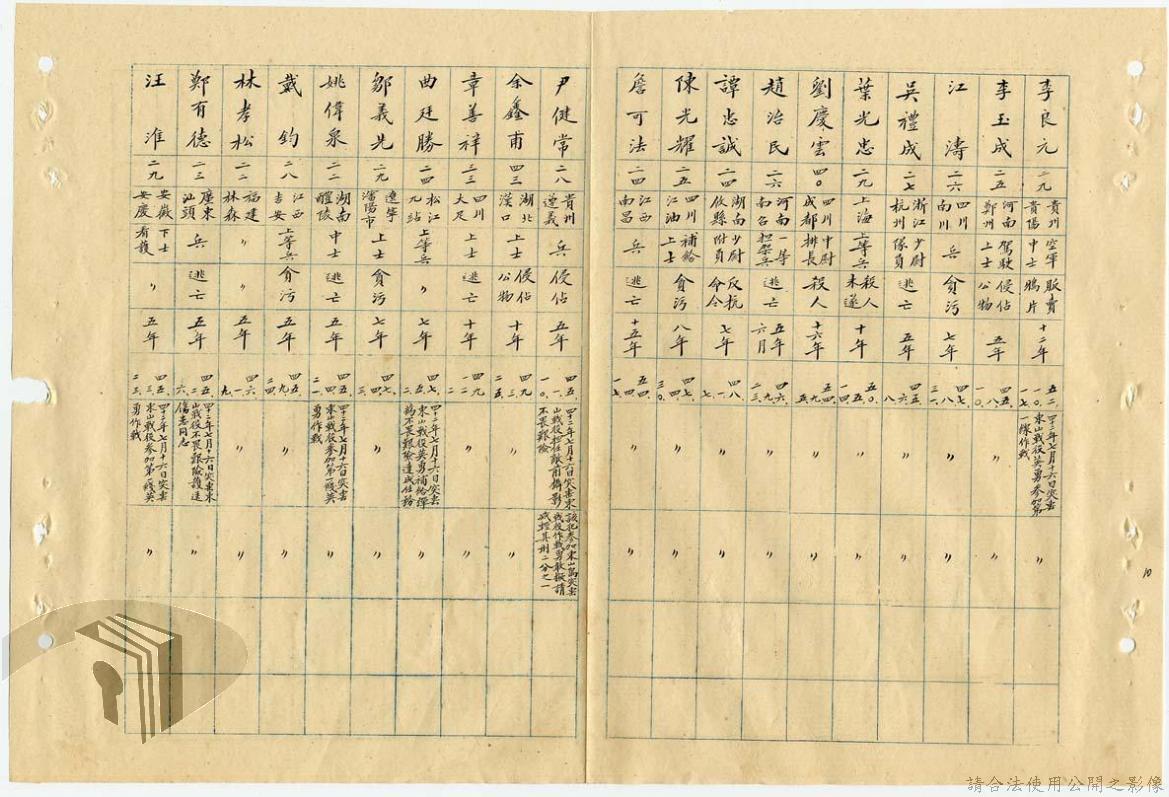 李良元 二九 貴州貴陽 空軍中士 販賣鴉片 十二年 五二、一〇、一七 四十二年七月十六日突击東山戰役英勇参加第一線作戰 〃
李玉成 二五 河南鄭州 駕駛上士 侵佔公物 五年 四五、八、一〇 〃 〃
江濤 二六 四川南川 兵 貪污 七年 四七、八、三一 〃 〃
吳禮成 二七 浙江杭州 少尉隊員 逃亡 五年 四五、六、八 〃 〃
葉光忠 二九 上海 上等兵 殺人未遂 十年 〃 〃
劉慶雲 四〇 四川成都 中尉排長 殺人 十六年 〃 〃
趙治民 二六 河南南召 一等担架兵 逃亡 五年六月 〃 〃
譚忠誠 二四 湖南攸縣 少尉附員 反抗命令 七年 四八、一、七 〃 〃
陳光耀 二五 四川江油 補給上士 貪污 八年 四七、四、三〇 〃 〃
詹可法 二四 江西南昌 兵 逃亡 十五年 五四、四、一七 〃 〃
尹健常 二八 貴州遵義 兵 侵佔 五年 四五、一、一〇 四十二年七月十六日突击東山戰役担任敵前攝影不畏艱險 該犯参加東山島突击戰役作戰勇敢擬請減輕其刑二分之一
余鑫甫 四三 湖北漢口 上士 侵佔公物 十年 四九、三、二五 〃 〃
章善祥 三三 四川大足 上士 逃亡 十年 四九、二、二一 〃 〃
曲廷勝 二四 松江九站 上等兵 〃 七年 四七、五、二五 四十二年七月十六日突击東山戰役英勇補給彈藥不畏艱險達成任務 〃
鄒義先 二九 遼寧瀋陽市 上士 貪污 七年 四七、四、三〇 〃 〃
姚偉泉 二二 湖南醴陵 中士 逃亡 五年 四五、四、二一 四十二年七月十六日突击東山戰役参加第一綫英勇作戰 〃
戴鈞 二八 江西吉安 上等兵 貪污 五年 四五、九、二四 〃 〃
林孝松 二二 福建林森 〃 〃 五年 四六、一、九 〃 〃
鄭有德 二三 廣東汕頭 兵 逃亡 五年 四五、二、六 四十二年七月十六日突击東山戰役不畏艱險護送傷患同志 〃
汪淮 二九 安徽安慶 下士有護 〃 五年 四五、三、二三 四十二年七月十六日突击東山戰役参加第一綫英勇作戰 〃
10
請合法使用公開之影像